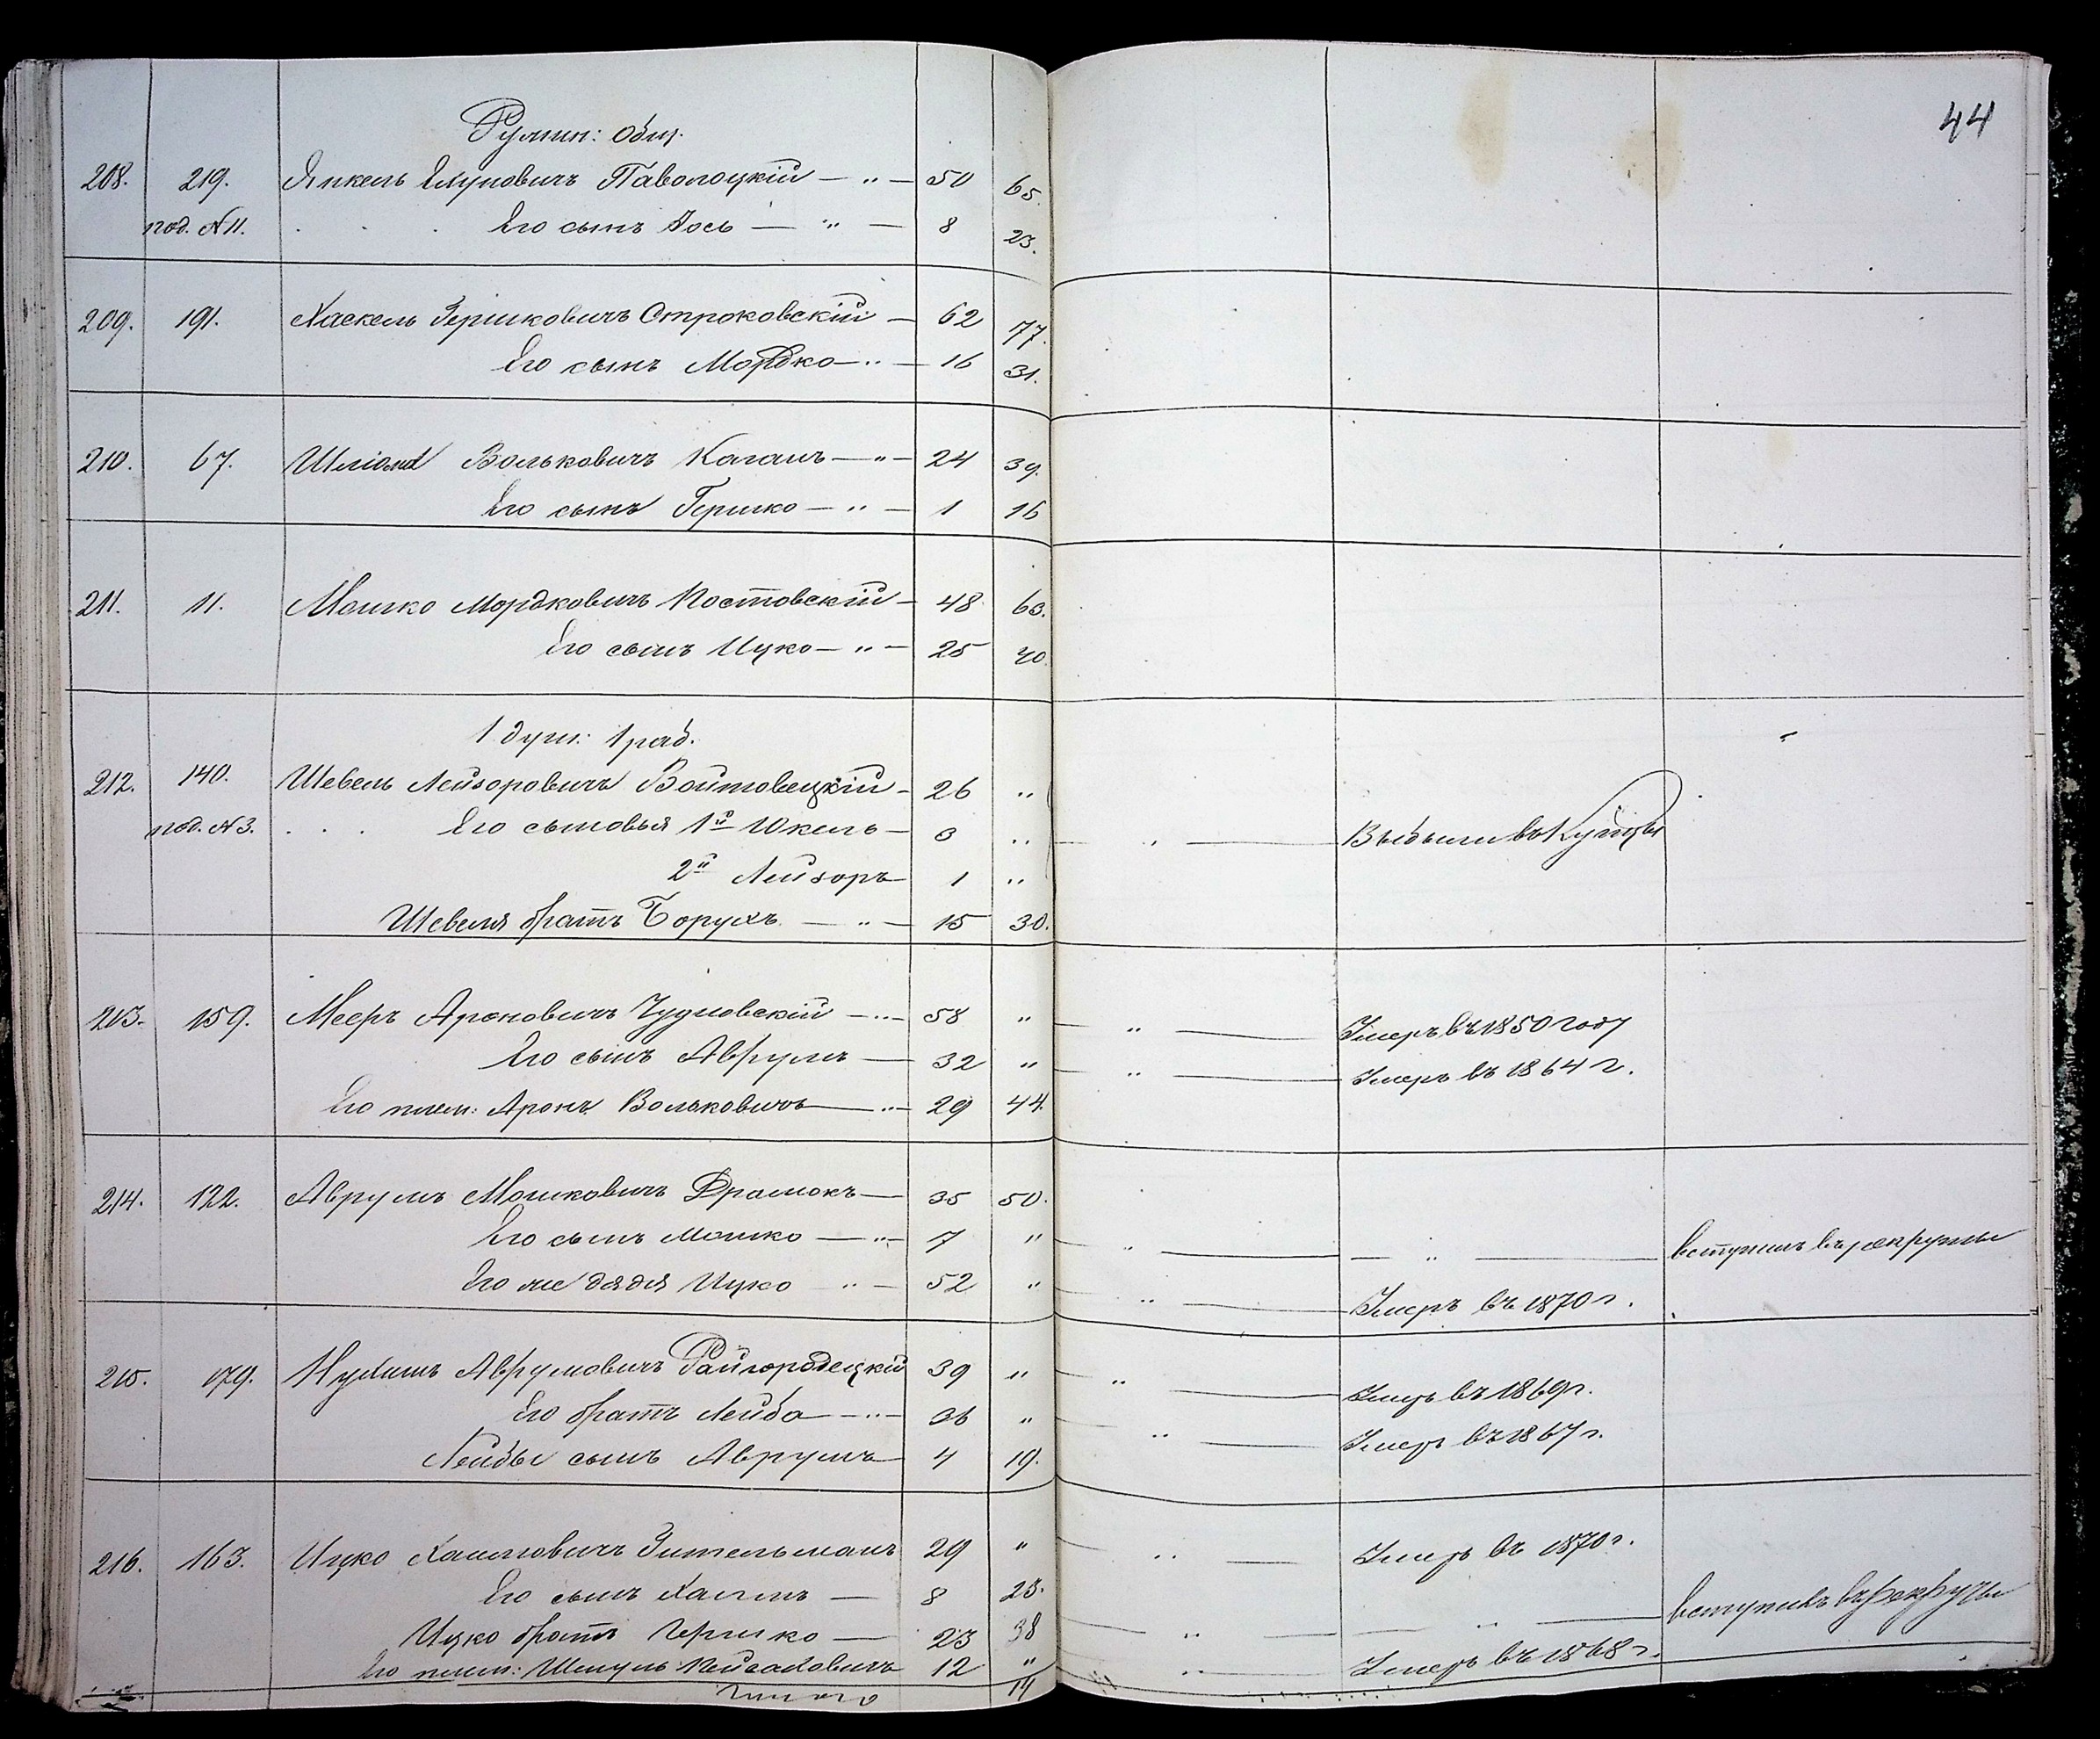 44
Румин: Общ.
208. 219. Янкель Ицковичъ Паволоцкій — „ — 50 65.
под. №11. . . . Его сынъ Іось — „ — 8 23.
209. 191. Хаскель Гершковичъ Строковскій — 62 77.
Его сынъ Мордко — „ — 16 31.
210. 67. Шліома Вольковичъ Каганъ — „ — 24 39.
Его сынъ Гершко — „ — 1 16
211. 11. Мошко Мордковичъ Костовскій — 48 63.
Его сынъ Ицко — „ — 25 40
1 душ: 1 раб.
212. 140. Шевель Лейзоровичъ Войтовецкій — 26 „
под. №3. . . . Его сыновья 1й Юкель — 3 „ „ — Выбыли въ Купцы
2й Лейзоръ 1 „
Шевеля братъ Борухъ — „ — 15 30.
213. 159. Мееръ Ароновичъ Чудновскій — „ — 58 „ „ — Умеръ въ 1850 году
Его сынъ Аврумъ — 32 „ „ — Умеръ въ 1864 г.
Его плем: Аронъ Вольковичъ — „ — 29 44.
214. 122. Аврумъ Мошковичъ Драмокъ — 35 50.
Его сынъ Мошко — „ — 7 „ „ — — „ — вступилъ въ рекруты
Его же дядя Ицко „ — 52 „ „ — Умеръ въ 1870 г.
215. 179. Нухимъ Аврумовичъ Райгородецкій 39 „ „ — Умеръ въ 1869 г.
Его братъ Лейба — „ — 36 „ „ — Умеръ въ 1867 г.
Лейбы сынъ Аврумъ 4 19.
216. 163. Ицко Хаимовичъ Зительманъ 29 „ „ — Умеръ въ 1870 г.
Его сынъ Хаимъ — 8 23. „ — вступилъ въ рекруты
Ицко братъ Гершко — 23 38 „ — — „ —
Его плем: Шмуль Пейсаховичъ 12 „ „ — Умеръ въ 1868 г.
Итого 14